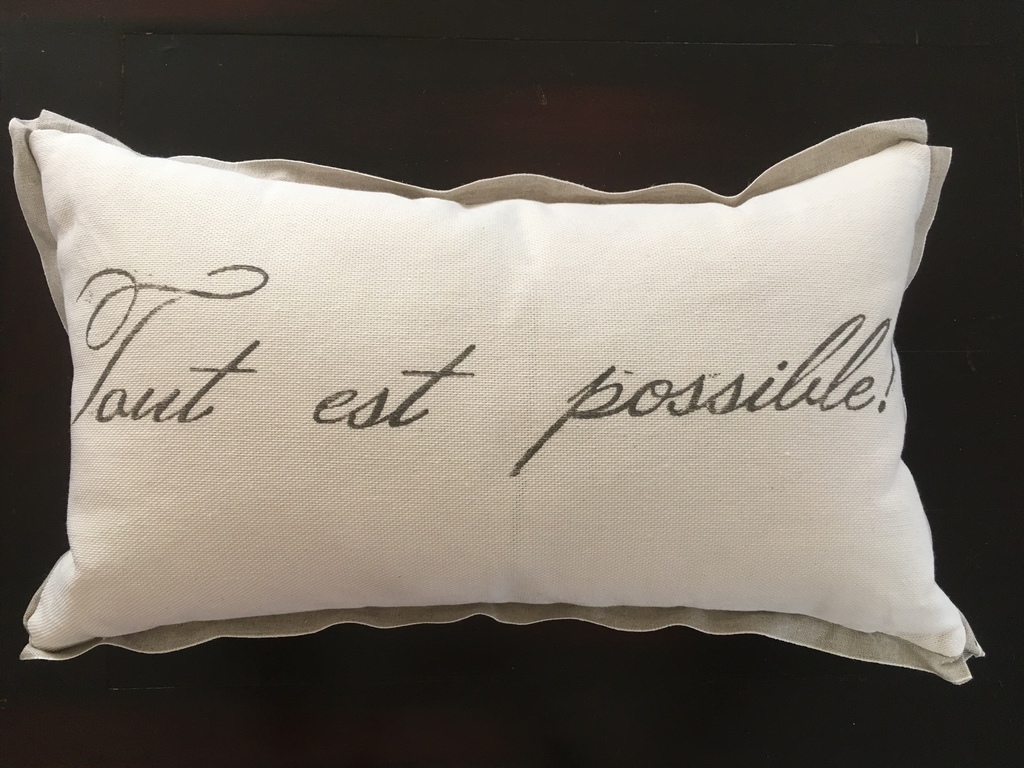 Tout est possible!